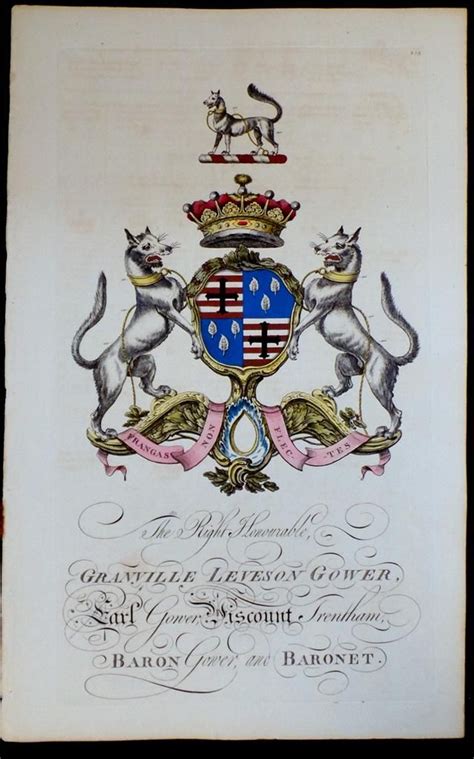 FRANGAS NON FLEC- TES
The Right Honourable,
GRANVILLE LEVESON GOWER,
Earl Gower, Viscount Trentham,
BARON Gower, and BARONET.